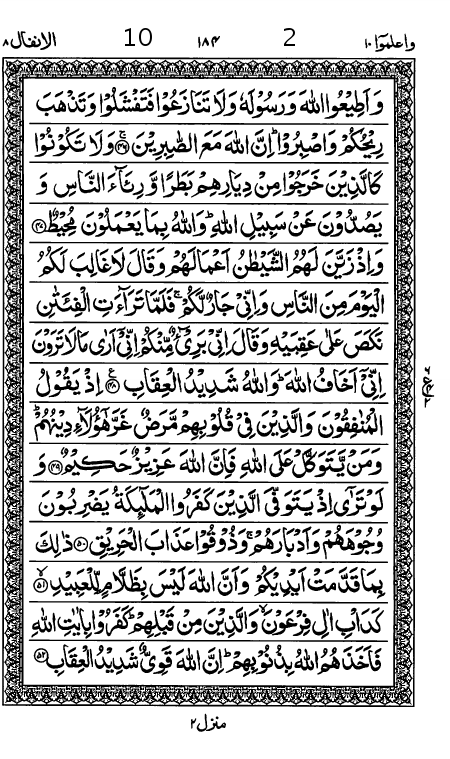 واعلموۤا ١٠ 2 ١٨٤ 10 الانفال ٨
وَاَطِيْعُوا اللّٰهَ وَرَسُوْلَهٗ وَلَا تَنَازَعُوْا فَتَفْشَلُوْا وَتَذْهَبَ
رِيْحُكُمْ وَاصْبِرُوْاؕ اِنَّ اللّٰهَ مَعَ الصّٰبِرِيْنَۚ ﴿٤٦﴾ وَلَا تَكُوْنُوْا
كَالَّذِيْنَ خَرَجُوْا مِنْ دِيَارِهِمْ بَطَرًا وَّرِئَآءَ النَّاسِ وَ
يَصُدُّوْنَ عَنْ سَبِيْلِ اللّٰهِؕ وَاللّٰهُ بِمَا يَعْمَلُوْنَ مُحِيْطٌ ﴿٤٧﴾
وَاِذْ زَيَّنَ لَهُمُ الشَّيْطٰنُ اَعْمَالَهُمْ وَقَالَ لَا غَالِبَ لَكُمُ
الْيَوْمَ مِنَ النَّاسِ وَاِنِّىْ جَارٌ لَّكُمْۚ فَلَمَّا تَرَآءَتِ الْفِئَتٰنِ
نَكَصَ عَلٰى عَقِبَيْهِ وَقَالَ اِنِّىْ بَرِىْٓءٌ مِّنْكُمْ اِنِّىْۤ اَرٰى مَا لَا تَرَوْنَ
اِنِّىْۤ اَخَافُ اللّٰهَؕ وَاللّٰهُ شَدِيْدُ الْعِقَابِ ﴿٤٨﴾ اِذْ يَقُوْلُ
الْمُنٰفِقُوْنَ وَالَّذِيْنَ فِىْ قُلُوْبِهِمْ مَّرَضٌ غَرَّ هٰٓؤُلَآءِ دِيْنُهُمْؕ
وَمَنْ يَّتَوَكَّلْ عَلَى اللّٰهِ فَاِنَّ اللّٰهَ عَزِيْزٌ حَكِيْمٌ ﴿٤٩﴾ وَ
لَوْ تَرٰٓى اِذْ يَتَوَفَّى الَّذِيْنَ كَفَرُوا الْمَلٰٓئِكَةُ يَضْرِبُوْنَ
وُجُوْهَهُمْ وَاَدْبَارَهُمْۚ وَذُوْقُوْا عَذَابَ الْحَرِيْقِ ﴿٥٠﴾ ذٰلِكَ
بِمَا قَدَّمَتْ اَيْدِيْكُمْ وَاَنَّ اللّٰهَ لَيْسَ بِظَلَّامٍ لِّلْعَبِيْدِۙ ﴿٥١﴾
كَدَاْبِ اٰلِ فِرْعَوْنَۙ وَالَّذِيْنَ مِنْ قَبْلِهِمْؕ كَفَرُوْا بِاٰيٰتِ اللّٰهِ
فَاَخَذَهُمُ اللّٰهُ بِذُنُوْبِهِمْؕ اِنَّ اللّٰهَ قَوِىٌّ شَدِيْدُ الْعِقَابِ ﴿٥٢﴾
منزل ٢